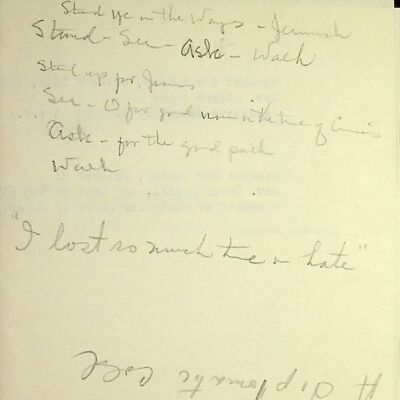 Stand ye in the Ways - Jeremiah
Stand - See - Ask - Walk
Stand up for Jesus
See - O for good men in the time of
Ask - for the good path
Walk
"I lost so much time in hate"
A Diplomatic Call